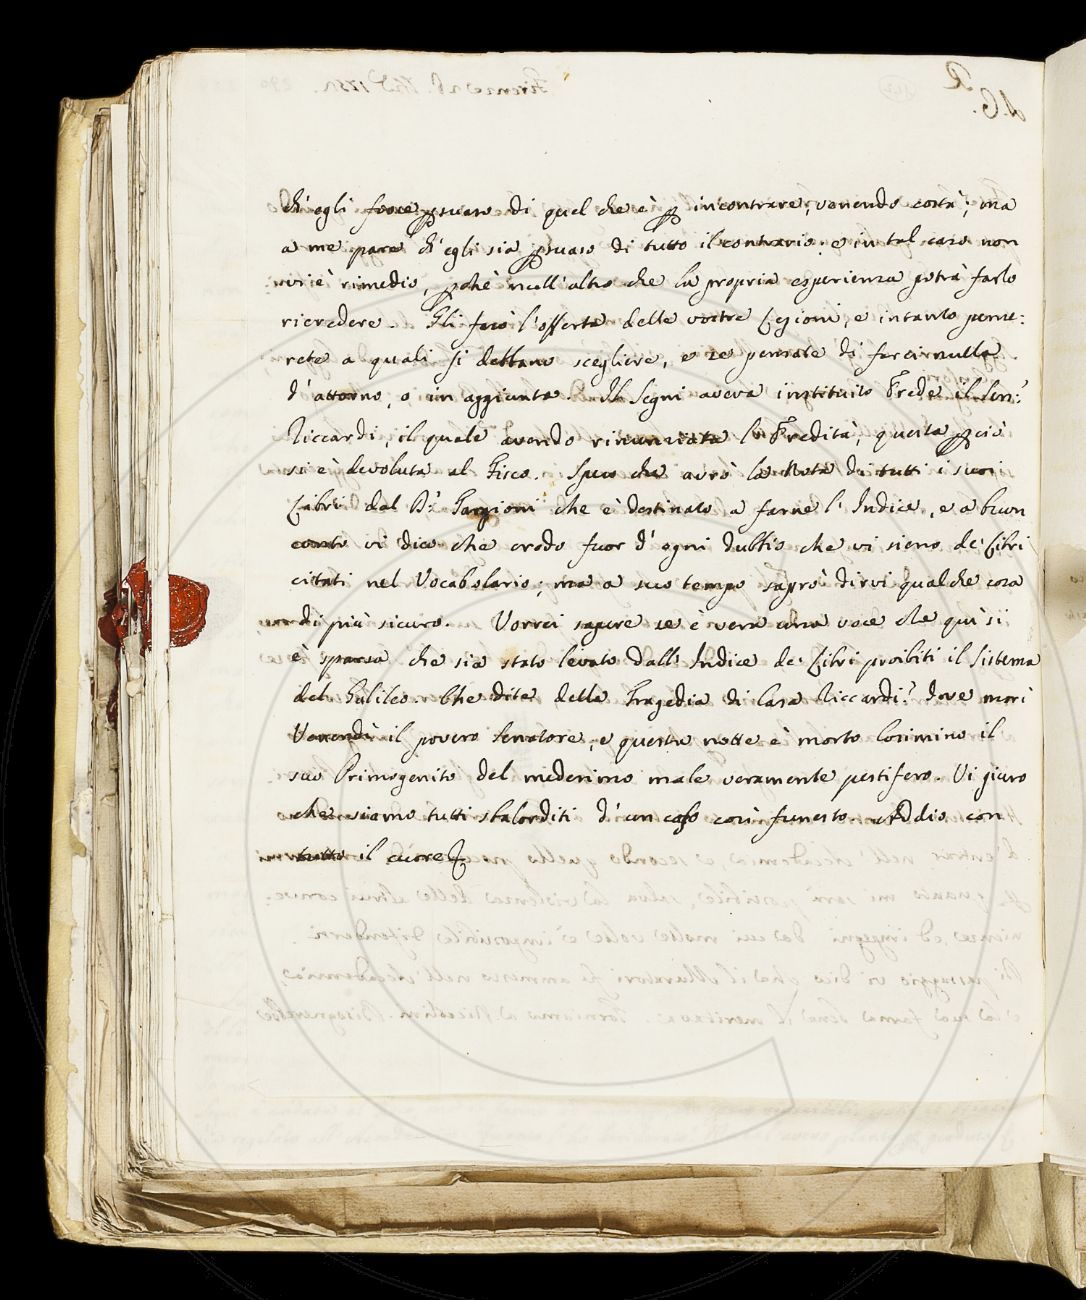 ch'egli fosse psuaso di quel che è p incontrare, venendo costà; ma
a me pare ch'egli sia psuaso di tutto il contrario: e in tal caso non
vi è rimedio, pchè nell'altro che la propria esperienza potrà farlo
ricredere. Gli farò l'offerta delle vostre Lezioni, e intanto pense:
rete a quali si debbano scegliere, e se pensate di farci nulla
d'attorno, o in aggiunta. Il Segni aveva instituito Erede il Sen:
Riccardi, il quale avendo rinunziata l'Eredità, questa pciò
si è devoluta al Fisco. Spero che avrò la Nota di tutti i suoi
Libri dal D: Targioni che è destinato a farne l'Indice, e a buon
conto vi dico che credo fuor d'ogni dubbio che vi sieno de' Libri
citati nel Vocabolario; ma a suo tempo saprò dirvi qualche cosa
di più sicuro. Vorrei sapere se è vera una voce che quì si
è sparsa che sia stato levato dall'Indice de' Libri proibiti il Sistema
del Galileo. Che dite della Tragedia di Casa Riccardi? dove morì
Venerdì il povero Senatore, e questa notte è morto Cosimino il
suo Primogenito del medesimo male veramente pestifero. Vi giuro
che siamo tutti sbalorditi d'un caso così funesto. Addio con
tutto il cuore